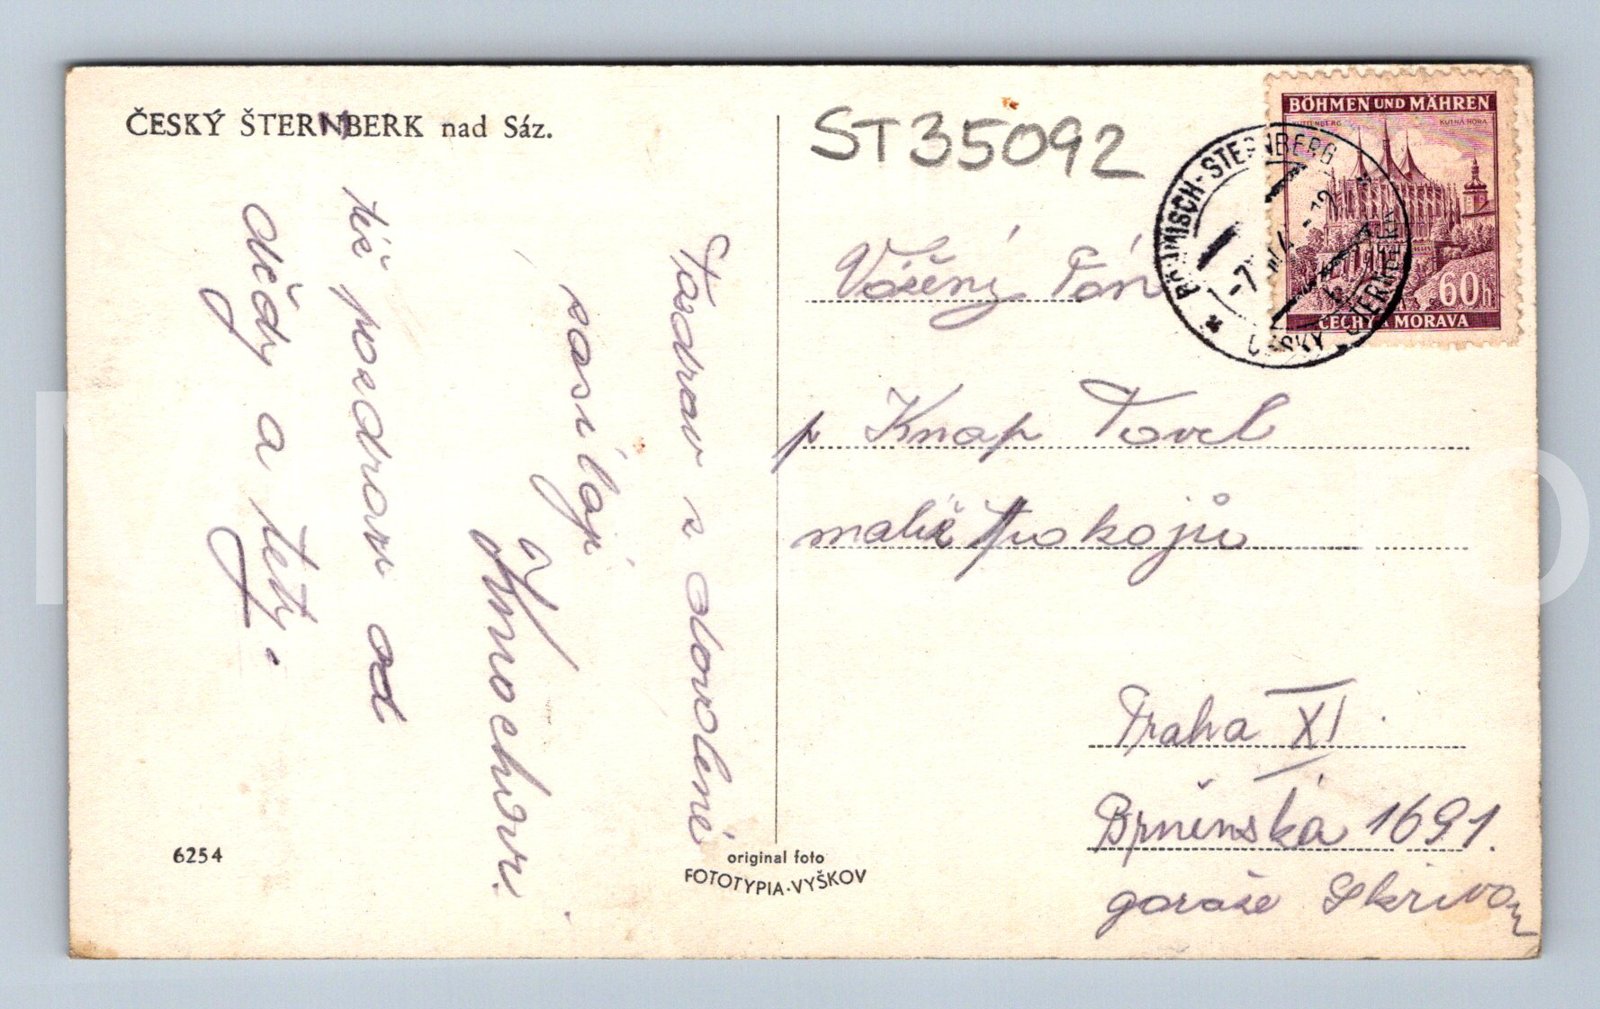 ČESKÝ ŠTERNBERK nad Sáz.
ST35092
BÖHMEN UND MÄHREN
KUTNÁ HORA
60h
ČECHY A MORAVA
BÖHMISCH-STERNBERG
ČESKÝ ŠTERNBERK
Pozdrav z dovolené
zasílají
Kmochovi.
též pozdrav od
dědy a tety.
Vážený Pán
p Knap Pavel
malíř pokojů
Praha XI.
Brněnská 1691.
garáže Skřivan
6254
original foto
FOTOTYPIA-VYŠKOV